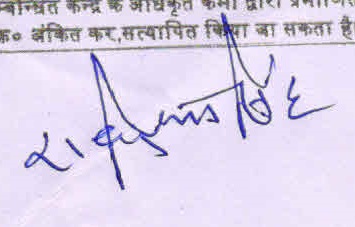 म्बन्धित केन्द्र के अधिकृत कर्मी द्वारा प्रमाणित
क० अंकित कर,सत्यापित किया जा सकता है
सिंह